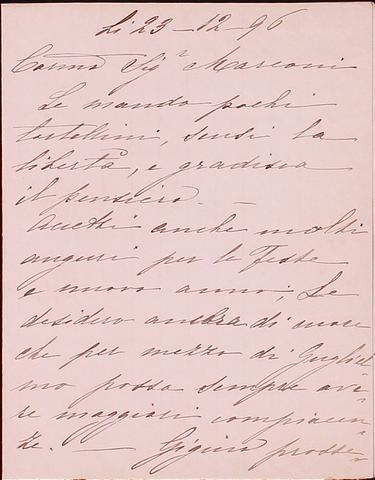 Li 23-12-96
Carmo Sigr Marconi
Le mando pochi
tortellini, scusi la
libertà, e gradisca
il pensiero. —
Accetti anche molti
auguri per le Feste
e nuovo anno; Le
desidero ancora di cuore
che per mezzo di Gugliel=
mo possa sempre ave=
re maggiori compiacen=
ze. — Gigino prosse=